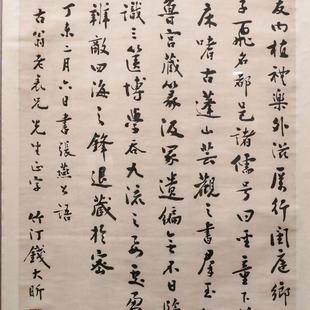 友内植禮樂外滋厚行閨庭鄉
子飛名郡邑諸儒號曰聖童下
床嗜古蓬山芸觀之書羣玉
魯宮藏篆汲冢遺編無不日
識三篋博學吞九流之要
辨敵四海之鋒退藏於密
丁未二月六日書張燕公語
古翁老表兄先生正字 竹汀錢大昕